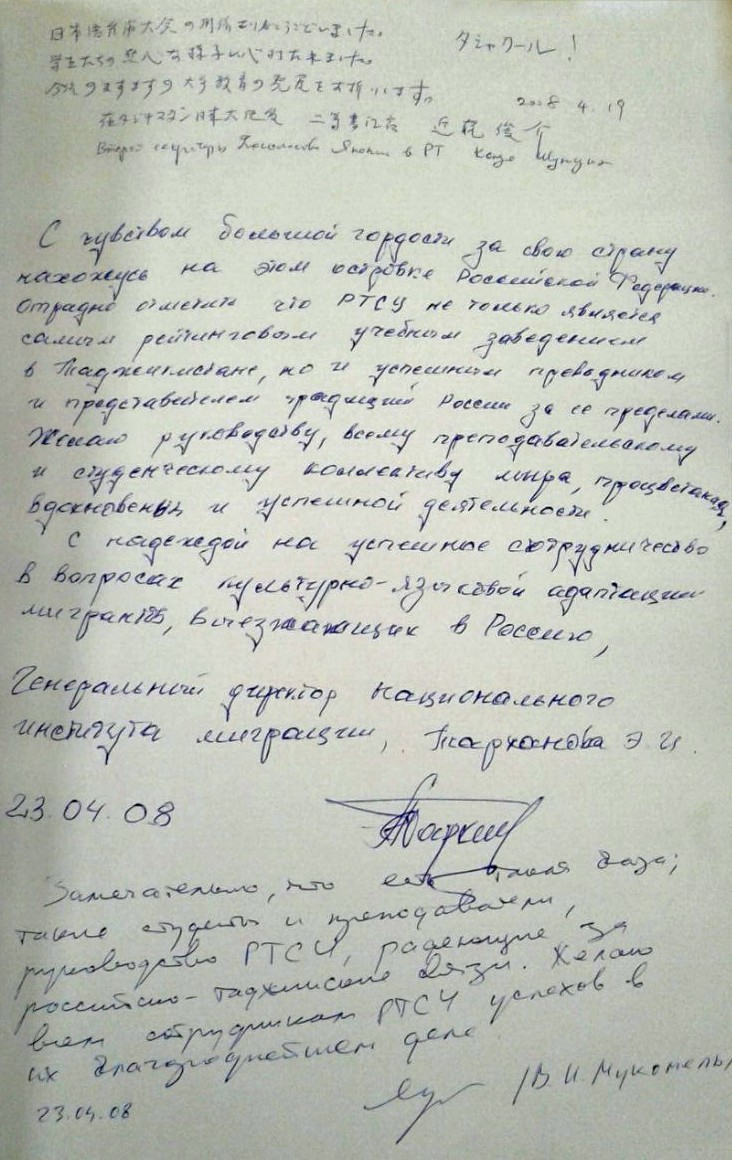 日本語弁論大会の開催ありがとうございました。
学生たちの真人な様子に心打たれました。
今後のますますの大学教育の発展をお祈りします。
タシャクール!
2008 4. 19
在タジキスタン日本大使館 二等書記官 近 俊介
Второй секретарь Посольства Японии в РТ
С чувством большой гордости за свою страну
нахожусь на этом островке Российской Федерации.
Отрадно отметить что РТСУ не только является
самым рейтинговым учебным заведением
в Таджикистане, но и успешным проводником
и представителем традиций России за ее пределами.
Желаю руководству, всему преподавательскому
и студенческому коллективу мира, процветания,
вдохновенья и успешной деятельности.
С надеждой на успешное сотрудничество
в вопросах культурно-языковой адаптации
мигрантов, выезжающих в Россию,
Генеральный директор Национального
института миграции, Тарханова Э.И.
23.04.08
Замечательно, что есть такая база;
такие студенты и преподаватели,
руководство РТСУ, радеющие за
российско-таджикские связи. Желаю
всем сотрудникам РТСУ успехов в
их благороднейшем деле
/В.И Мукомель/
23.04.08